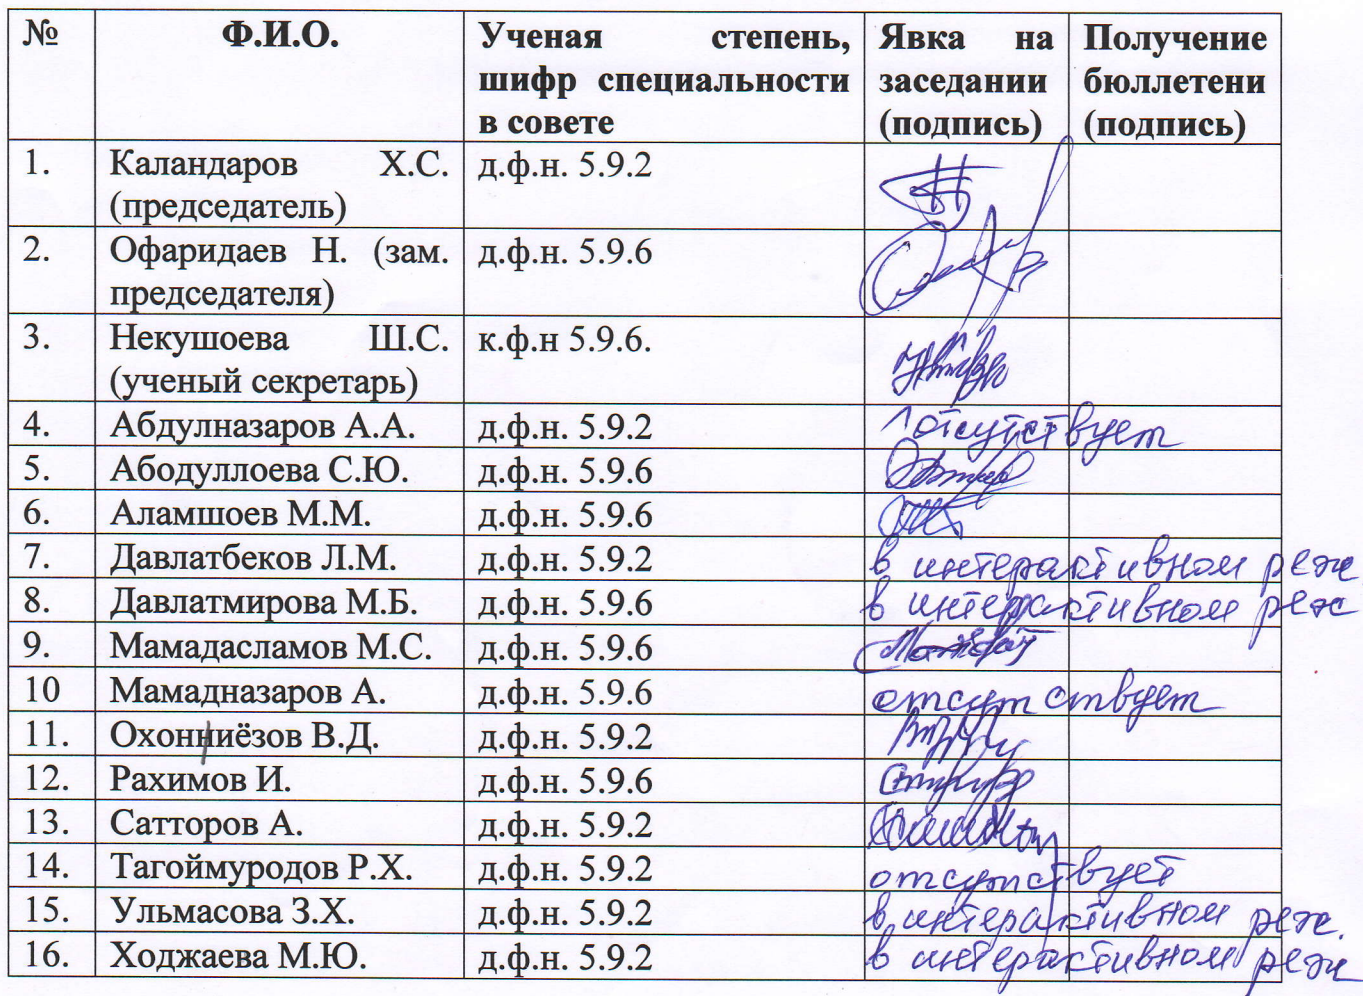 № Ф.И.О. Ученая степень, Явка на Получение
шифр специальности заседании бюллетени
в совете (подпись) (подпись)
1. Каландаров Х.С. д.ф.н. 5.9.2
(председатель)
2. Офаридаев Н. (зам. д.ф.н. 5.9.6
председателя)
3. Некушоева Ш.С. к.ф.н 5.9.6.
(ученый секретарь)
4. Абдулназаров А.А. д.ф.н. 5.9.2 отсутствует
5. Абодуллоева С.Ю. д.ф.н. 5.9.6
6. Аламшоев М.М. д.ф.н. 5.9.6
7. Давлатбеков Л.М. д.ф.н. 5.9.2 в интерактивном реж
8. Давлатмирова М.Б. д.ф.н. 5.9.6 в интерактивном реж
9. Мамадасламов М.С. д.ф.н. 5.9.6
10 Мамадназаров А. д.ф.н. 5.9.6 отсутствует
11. Охонниёзов В.Д. д.ф.н. 5.9.2
12. Рахимов И. д.ф.н. 5.9.6
13. Сатторов А. д.ф.н. 5.9.2
14. Тагоймуродов Р.Х. д.ф.н. 5.9.2 отсутствует
15. Ульмасова З.Х. д.ф.н. 5.9.2 в интерактивном реж.
16. Ходжаева М.Ю. д.ф.н. 5.9.2 в интерактивном реж